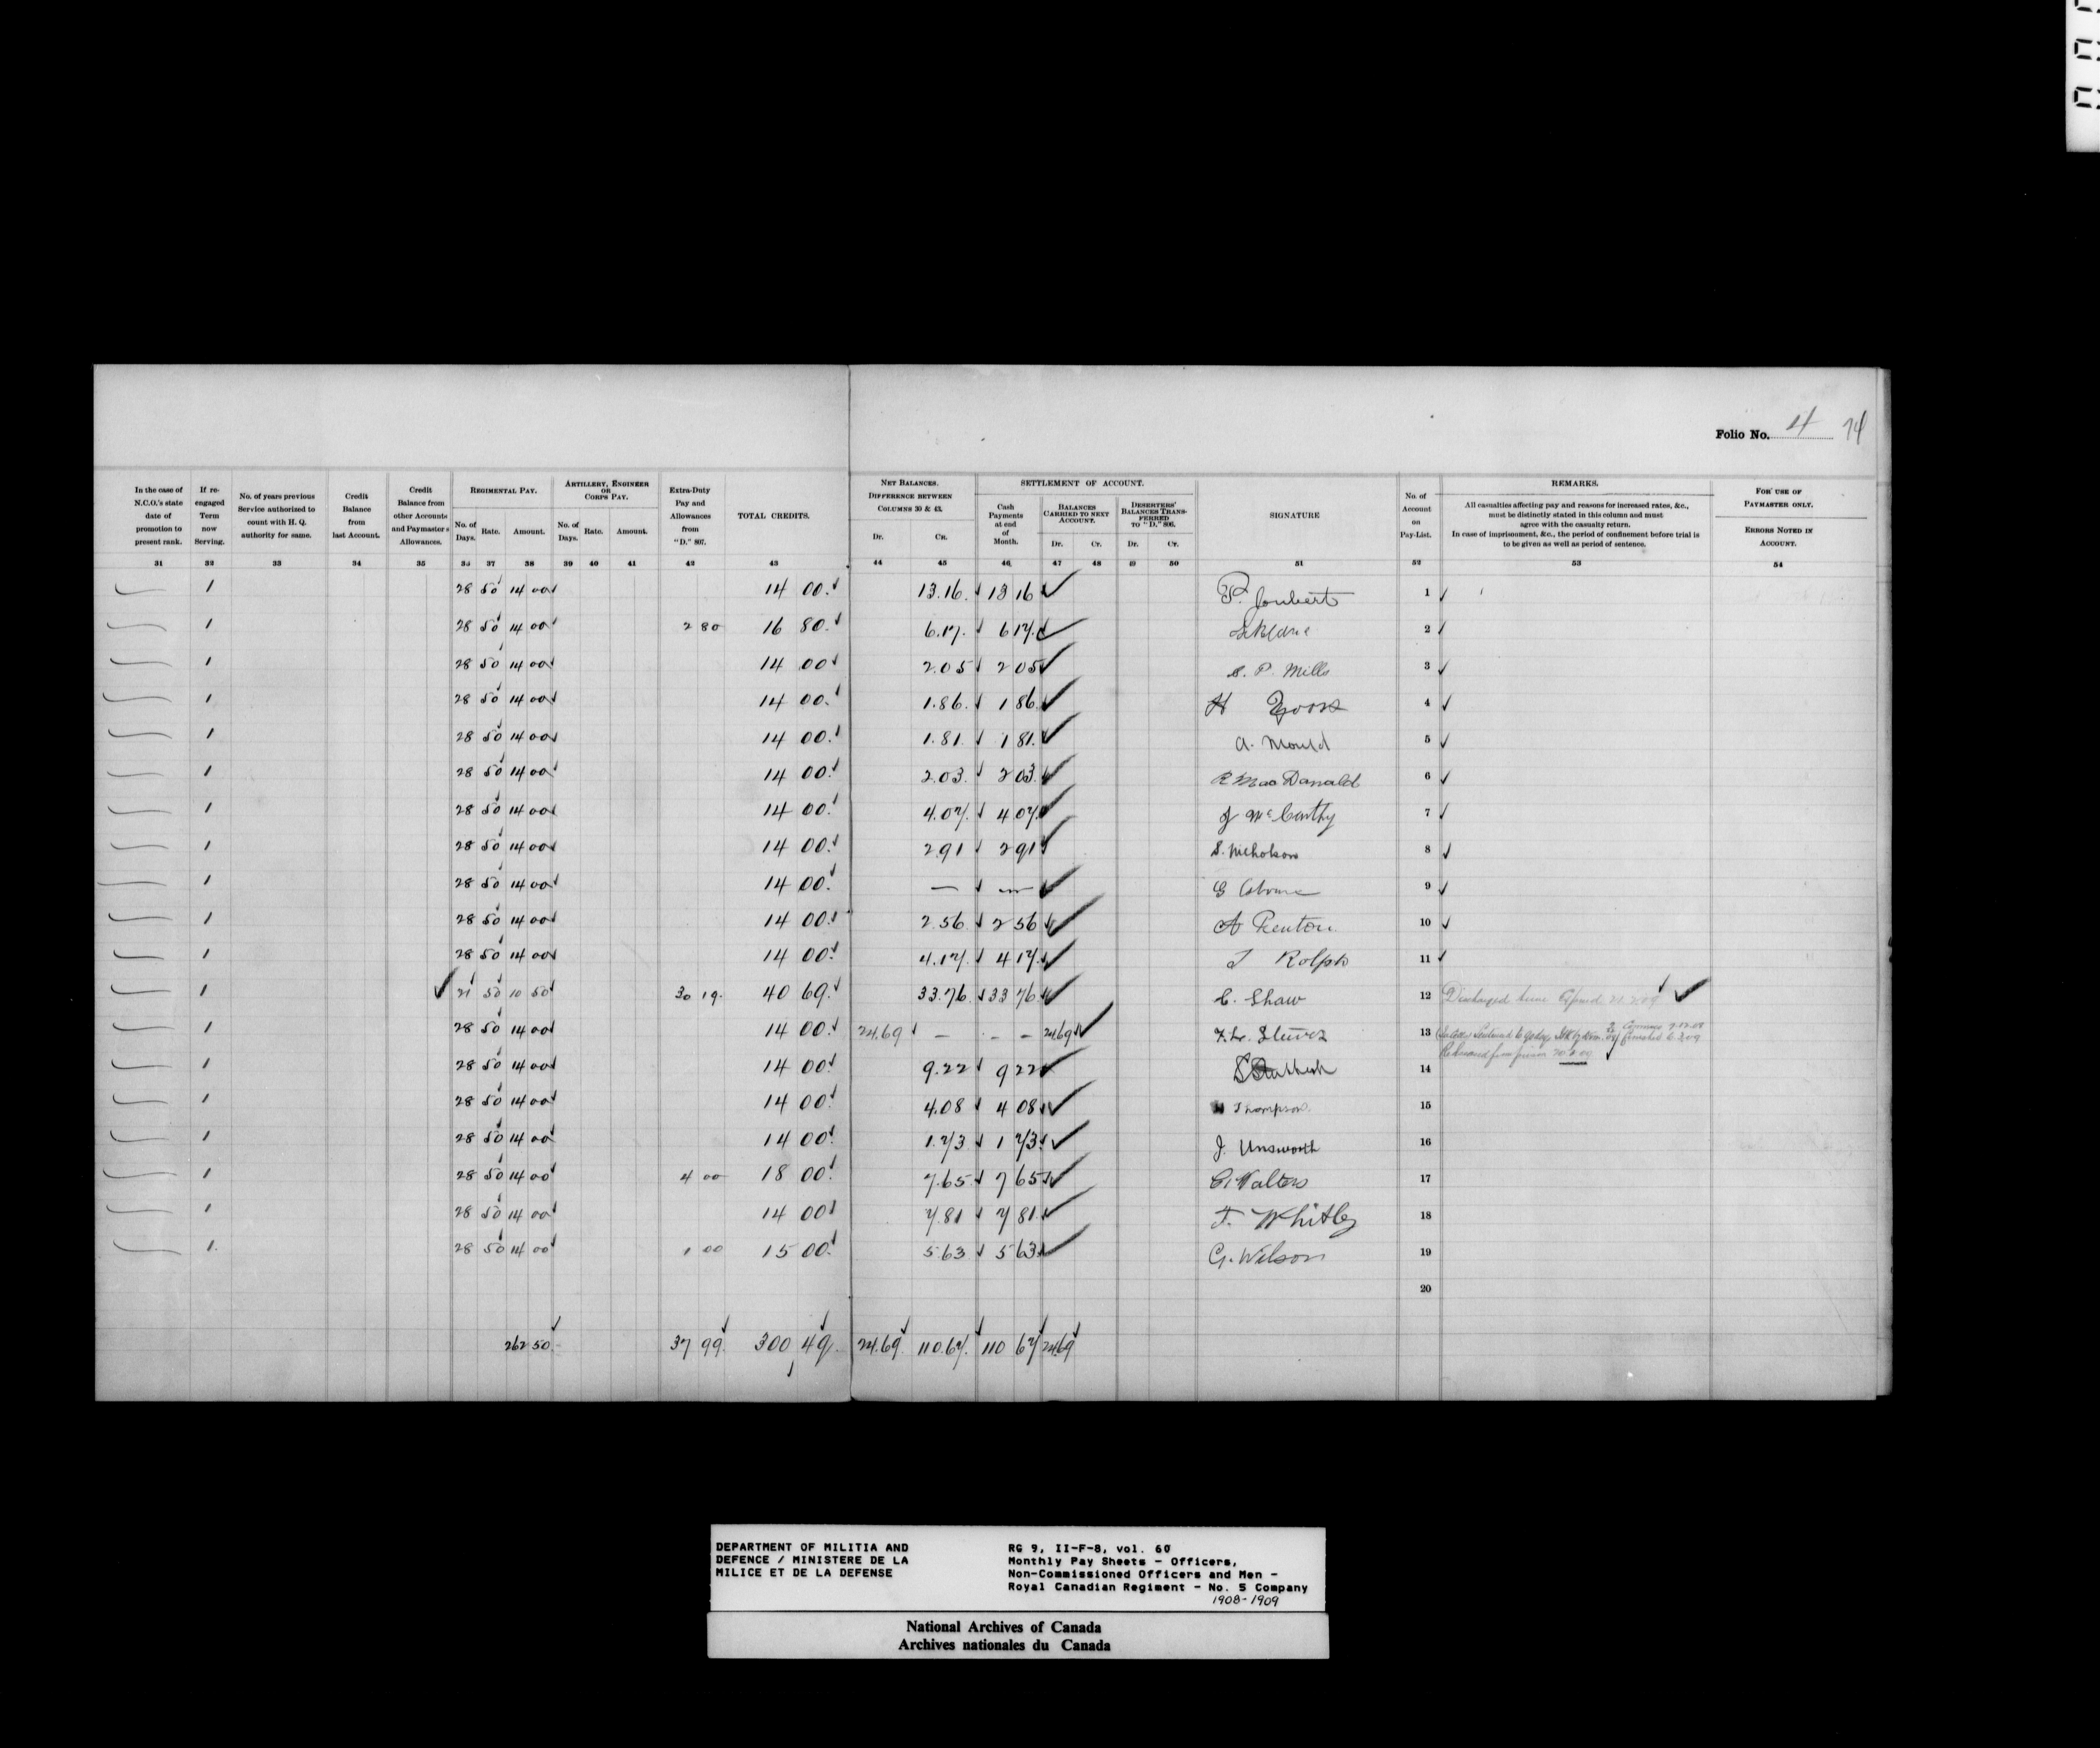 Folio No. 4 74
In the case of N.C.O.'s state date of promotion to present rank. If re-engaged Term now Serving. No. of years previous Service authorized to count with H. Q. authority for same. Credit Balance from last Account. Credit Balance from other Accounts and Paymasters Allowances. REGIMENTAL PAY. No. of Days. Rate. Amount. ARTILLERY, ENGINEER OR CORPS PAY. No. of Days. Rate. Amount. Extra-Duty Pay and Allowances from "D." 807. TOTAL CREDITS. NET BALANCES. DIFFERENCE BETWEEN COLUMNS 30 & 43. Dr. Cr. SETTLEMENT OF ACCOUNT. Cash Payments at end of Month. BALANCES CARRIED TO NEXT ACCOUNT. Dr. Cr. DESERTERS' BALANCES TRANSFERRED TO "D." 806. Dr. Cr. SIGNATURE No. of Account on Pay-List. REMARKS. All casualties affecting pay and reasons for increased rates, &c., must be distinctly stated in this column and must agree with the casualty return. In case of imprisonment, &c., the period of confinement before trial is to be given as well as period of sentence. FOR USE OF PAYMASTER ONLY. ERRORS NOTED IN ACCOUNT.
31 32 33 34 35 36 37 38 39 40 41 42 43 44 45 46 47 48 49 50 51 52 53 54
1 28 50 14 00 14 00. 13.16. 13 16 P. Joubert 1
1 28 50 14 00 2 80 16 80. 6.17. 6 17. 2
1 28 50 14 00 14 00 2.05 2 05 S. P. Mills 3
1 28 50 14 00 14 00. 1.86. 1 86. H 4
1 28 50 14 00 14 00. 1.81. 1 81. A. Mould 5
1 28 50 14 00 14 00. 2.03. 2 03. R MacDanald 6
1 28 50 14 00 14 00. 4.07. 4 07. J McCarthy 7
1 28 50 14 00 14 00. 2.91 2 91 S. Nicholson 8
1 28 50 14 00 14 00. — — G 9
1 28 50 14 00 14 00. 2.56. 2 56 A Renton. 10
1 28 50 14 00 14 00. 4.17. 4 17. J Rolph 11
1 21 50 10 50 30 19. 40 69. 33.76. 33 76. C. Shaw 12 Discharged time Expired 21.2.09
1 28 50 14 00 14 00. 24.69 — – – 24.69 13
Released from prison
1 28 50 14 00 14 00. 9.22 9 22 14
1 28 50 14 00 14 00. 4.08 4 08 Thompson. 15
1 28 50 14 00 14 00. 1.73 1 73. J. Unsworth 16
1 28 50 14 00 4 00 18 00. 7.65. 7 65 C. Walters 17
1 28 50 14 00 14 00 7.81 7 81 F. Whitley 18
1. 28 50 14 00 1 00 15 00. 5.63 5 63 G. Wilson 19
20
262 50 37 99. 300 49. 24.69. 110.67. 110 67 24.69
DEPARTMENT OF MILITIA AND
DEFENCE / MINISTERE DE LA
MILICE ET DE LA DEFENSE
RG 9, II-F-8, vol. 60
Monthly Pay Sheets - Officers,
Non-Commissioned Officers and Men -
Royal Canadian Regiment - No. 5 Company
1908-1909
National Archives of Canada
Archives nationales du Canada